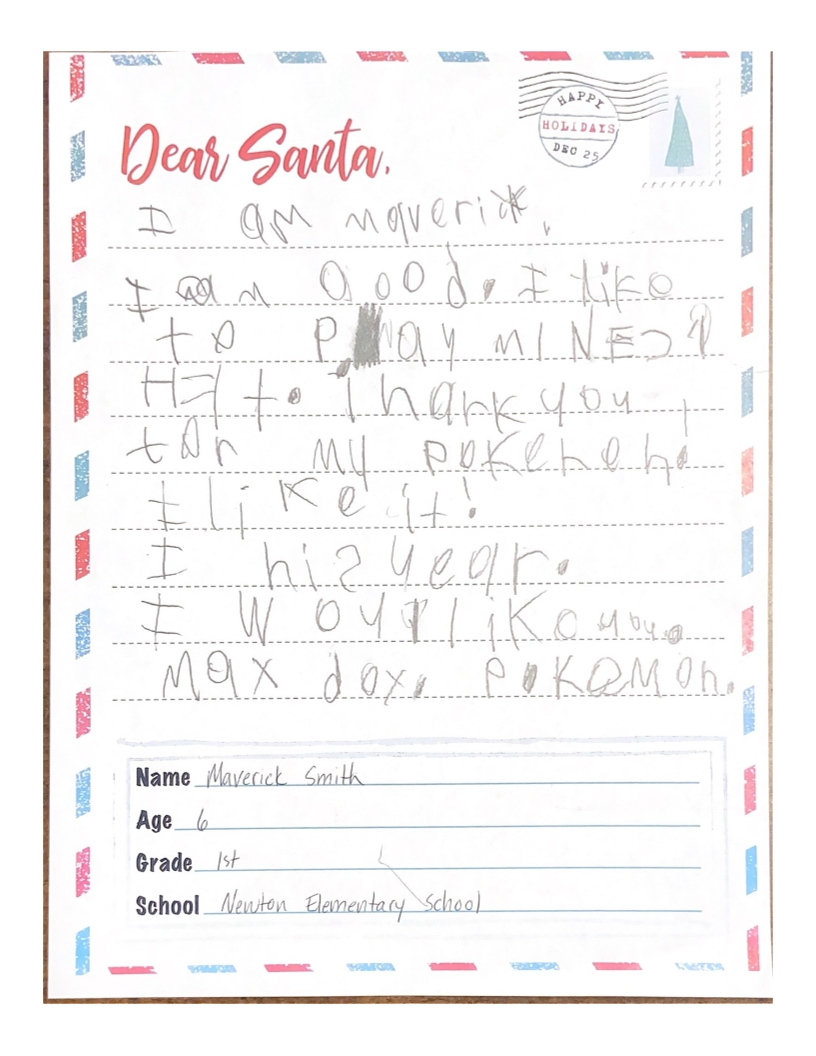 HAPPY
HOLIDAYS
DEC 25
Dear Santa,
I am maverick.
I am good. I like
to Play MINECJ
t. Thank you
for my pokehen.
I like it!
I his year.
I Woud like you.
Max dox. POKeMon.
Name Maverick Smith
Age 6
Grade 1st
School Newton Elementary School